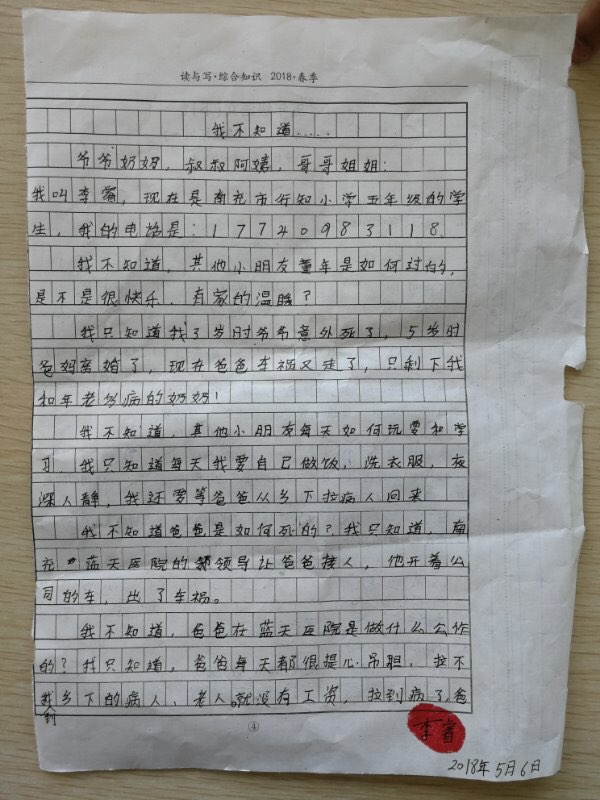 读与写·综合知识 2018·春季
我不知道.....
爷爷奶奶，叔叔阿姨，哥哥姐姐：
我叫李睿，现在是南充市行知小学五年级的学
生，我的电话是：17740983118.
我不知道，其他小朋友童年是如何过的，
是不是很快乐、有家的温暖？
我只知道我3岁时爷爷意外死了，5岁时
爸妈离婚了，现在爸爸车祸又走了，只剩下我
和年老多病的奶奶！
我不知道，其他小朋友每天如何玩耍和学
习，我只知道每天我要自己做饭，洗衣服，夜
深人静，我还要等爸爸从乡下拉病人回来
我不知道爸爸是如何死的？我只知道，南
充蓝天医院的领导让爸爸接人，他开着公
司的车，出了车祸。
我不知道，爸爸在蓝天医院是做什么工作
的？我只知道，爸爸每天都很提心吊胆，拉不
到乡下的病人、老人就没有工资，拉到病了爸
④
李睿
2018年5月6日